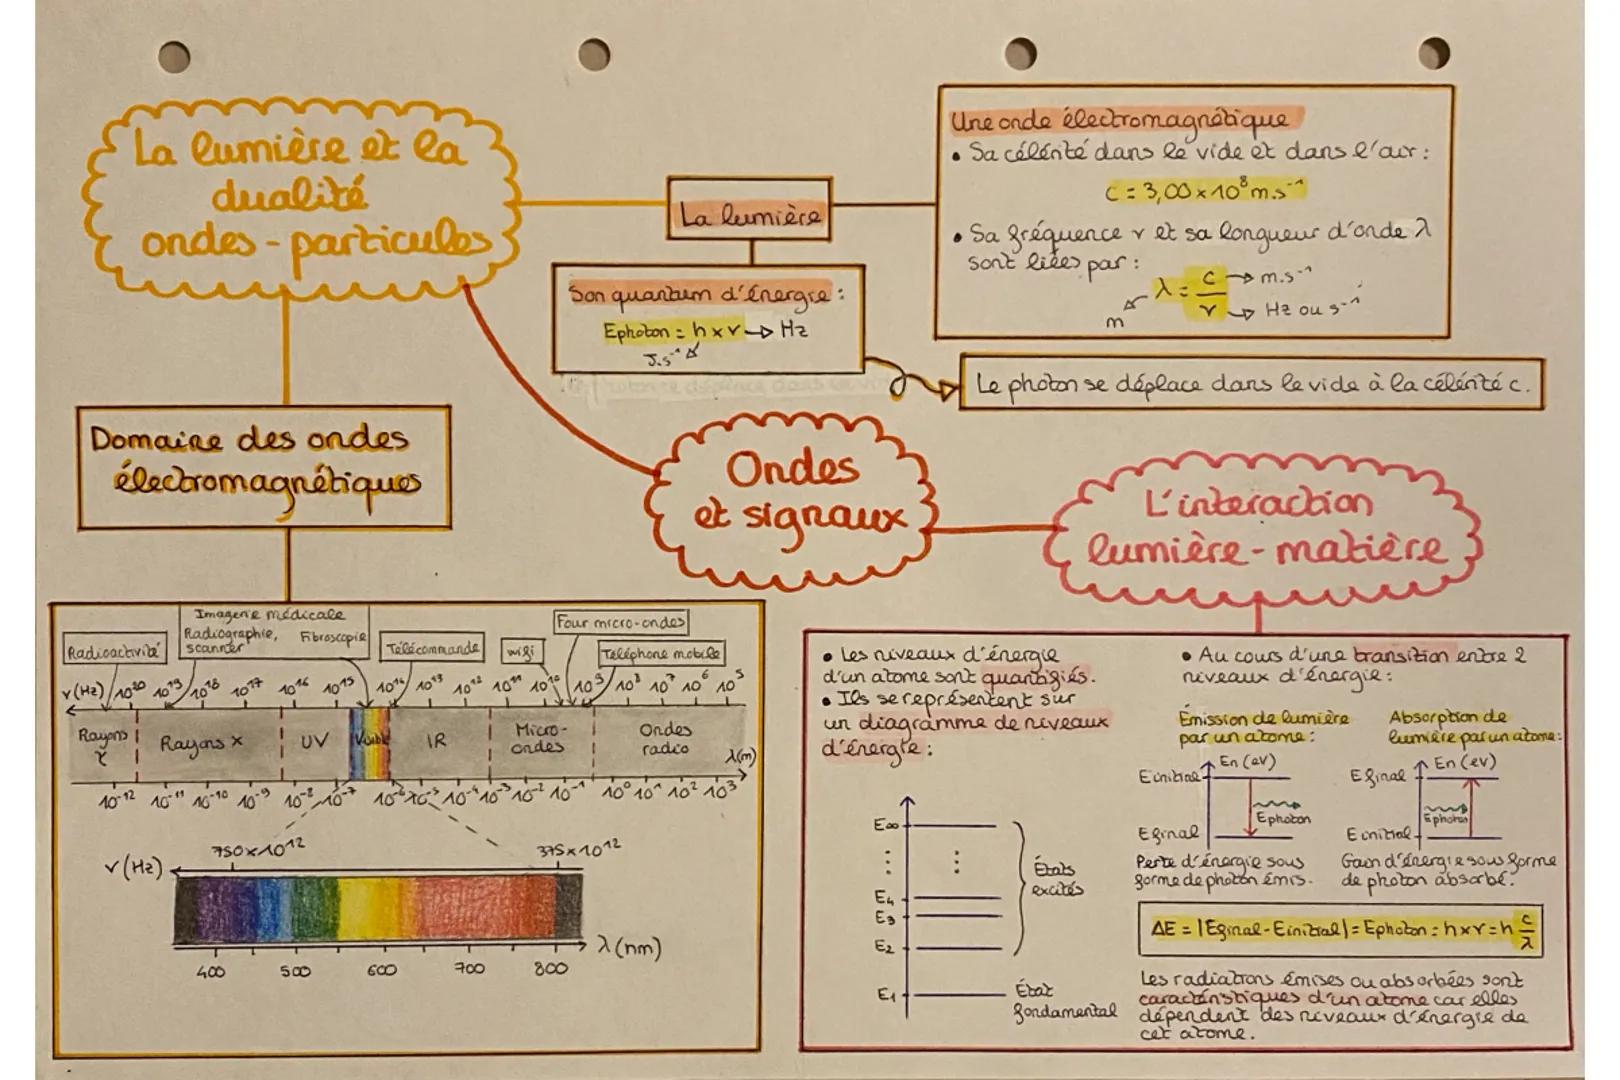 La lumière et la
dualité
ondes-particules
La lumière
Une onde électromagnétique
• Sa célérité dans le vide et dans l'air :
c = 3,00 × 10⁸ m.s⁻¹
• Sa fréquence ν et sa longueur d'onde λ
sont liées par :
λ = c / ν
m.s⁻¹
Hz ou s⁻¹
m
Son quantum d'énergie :
Ephoton = h × ν → Hz
J.s⁻¹
Le photon se déplace dans le vide à la célérité c.
Domaine des ondes
électromagnétiques
Ondes
et signaux
L'interaction
lumière-matière
Imagerie médicale
Radiographie, Fibroscopie
scanner
Radioactivité
Télécommande
wifi
Four micro-ondes
Téléphone mobile
ν (Hz) 10²⁰ 10¹⁹ 10¹⁸ 10¹⁷ 10¹⁶ 10¹⁵ 10¹⁴ 10¹³ 10¹² 10¹¹ 10¹⁰ 10⁹ 10⁸ 10⁷ 10⁶ 10⁵
Rayons γ
Rayons X
UV
Visible
IR
Micro-ondes
Ondes radio
λ(m)
10⁻¹² 10⁻¹¹ 10⁻¹⁰ 10⁻⁹ 10⁻⁸ 10⁻⁷ 10⁻⁶ 10⁻⁵ 10⁻⁴ 10⁻³ 10⁻² 10⁻¹ 10⁰ 10¹ 10² 10³
750×10¹² 375×10¹²
ν (Hz)
λ (nm)
400 500 600 700 800
• Les niveaux d'énergie
d'un atome sont quantifiés.
• Ils se représentent sur
un diagramme de niveaux
d'énergie :
E∞
E4
E3
E2
E1
États
excités
État
fondamental
• Au cours d'une transition entre 2
niveaux d'énergie :
Émission de lumière
par un atome :
En (eV)
Einitial
Ephoton
Efinal
Perte d'énergie sous
forme de photon émis.
Absorption de
lumière par un atome :
En (eV)
Efinal
Ephoton
Einitial
Gain d'énergie sous forme
de photon absorbé.
ΔE = |Efinal - Einitial| = Ephoton = h×ν = h c/λ
Les radiations émises ou absorbées sont
caractéristiques d'un atome car elles
dépendent des niveaux d'énergie de
cet atome.